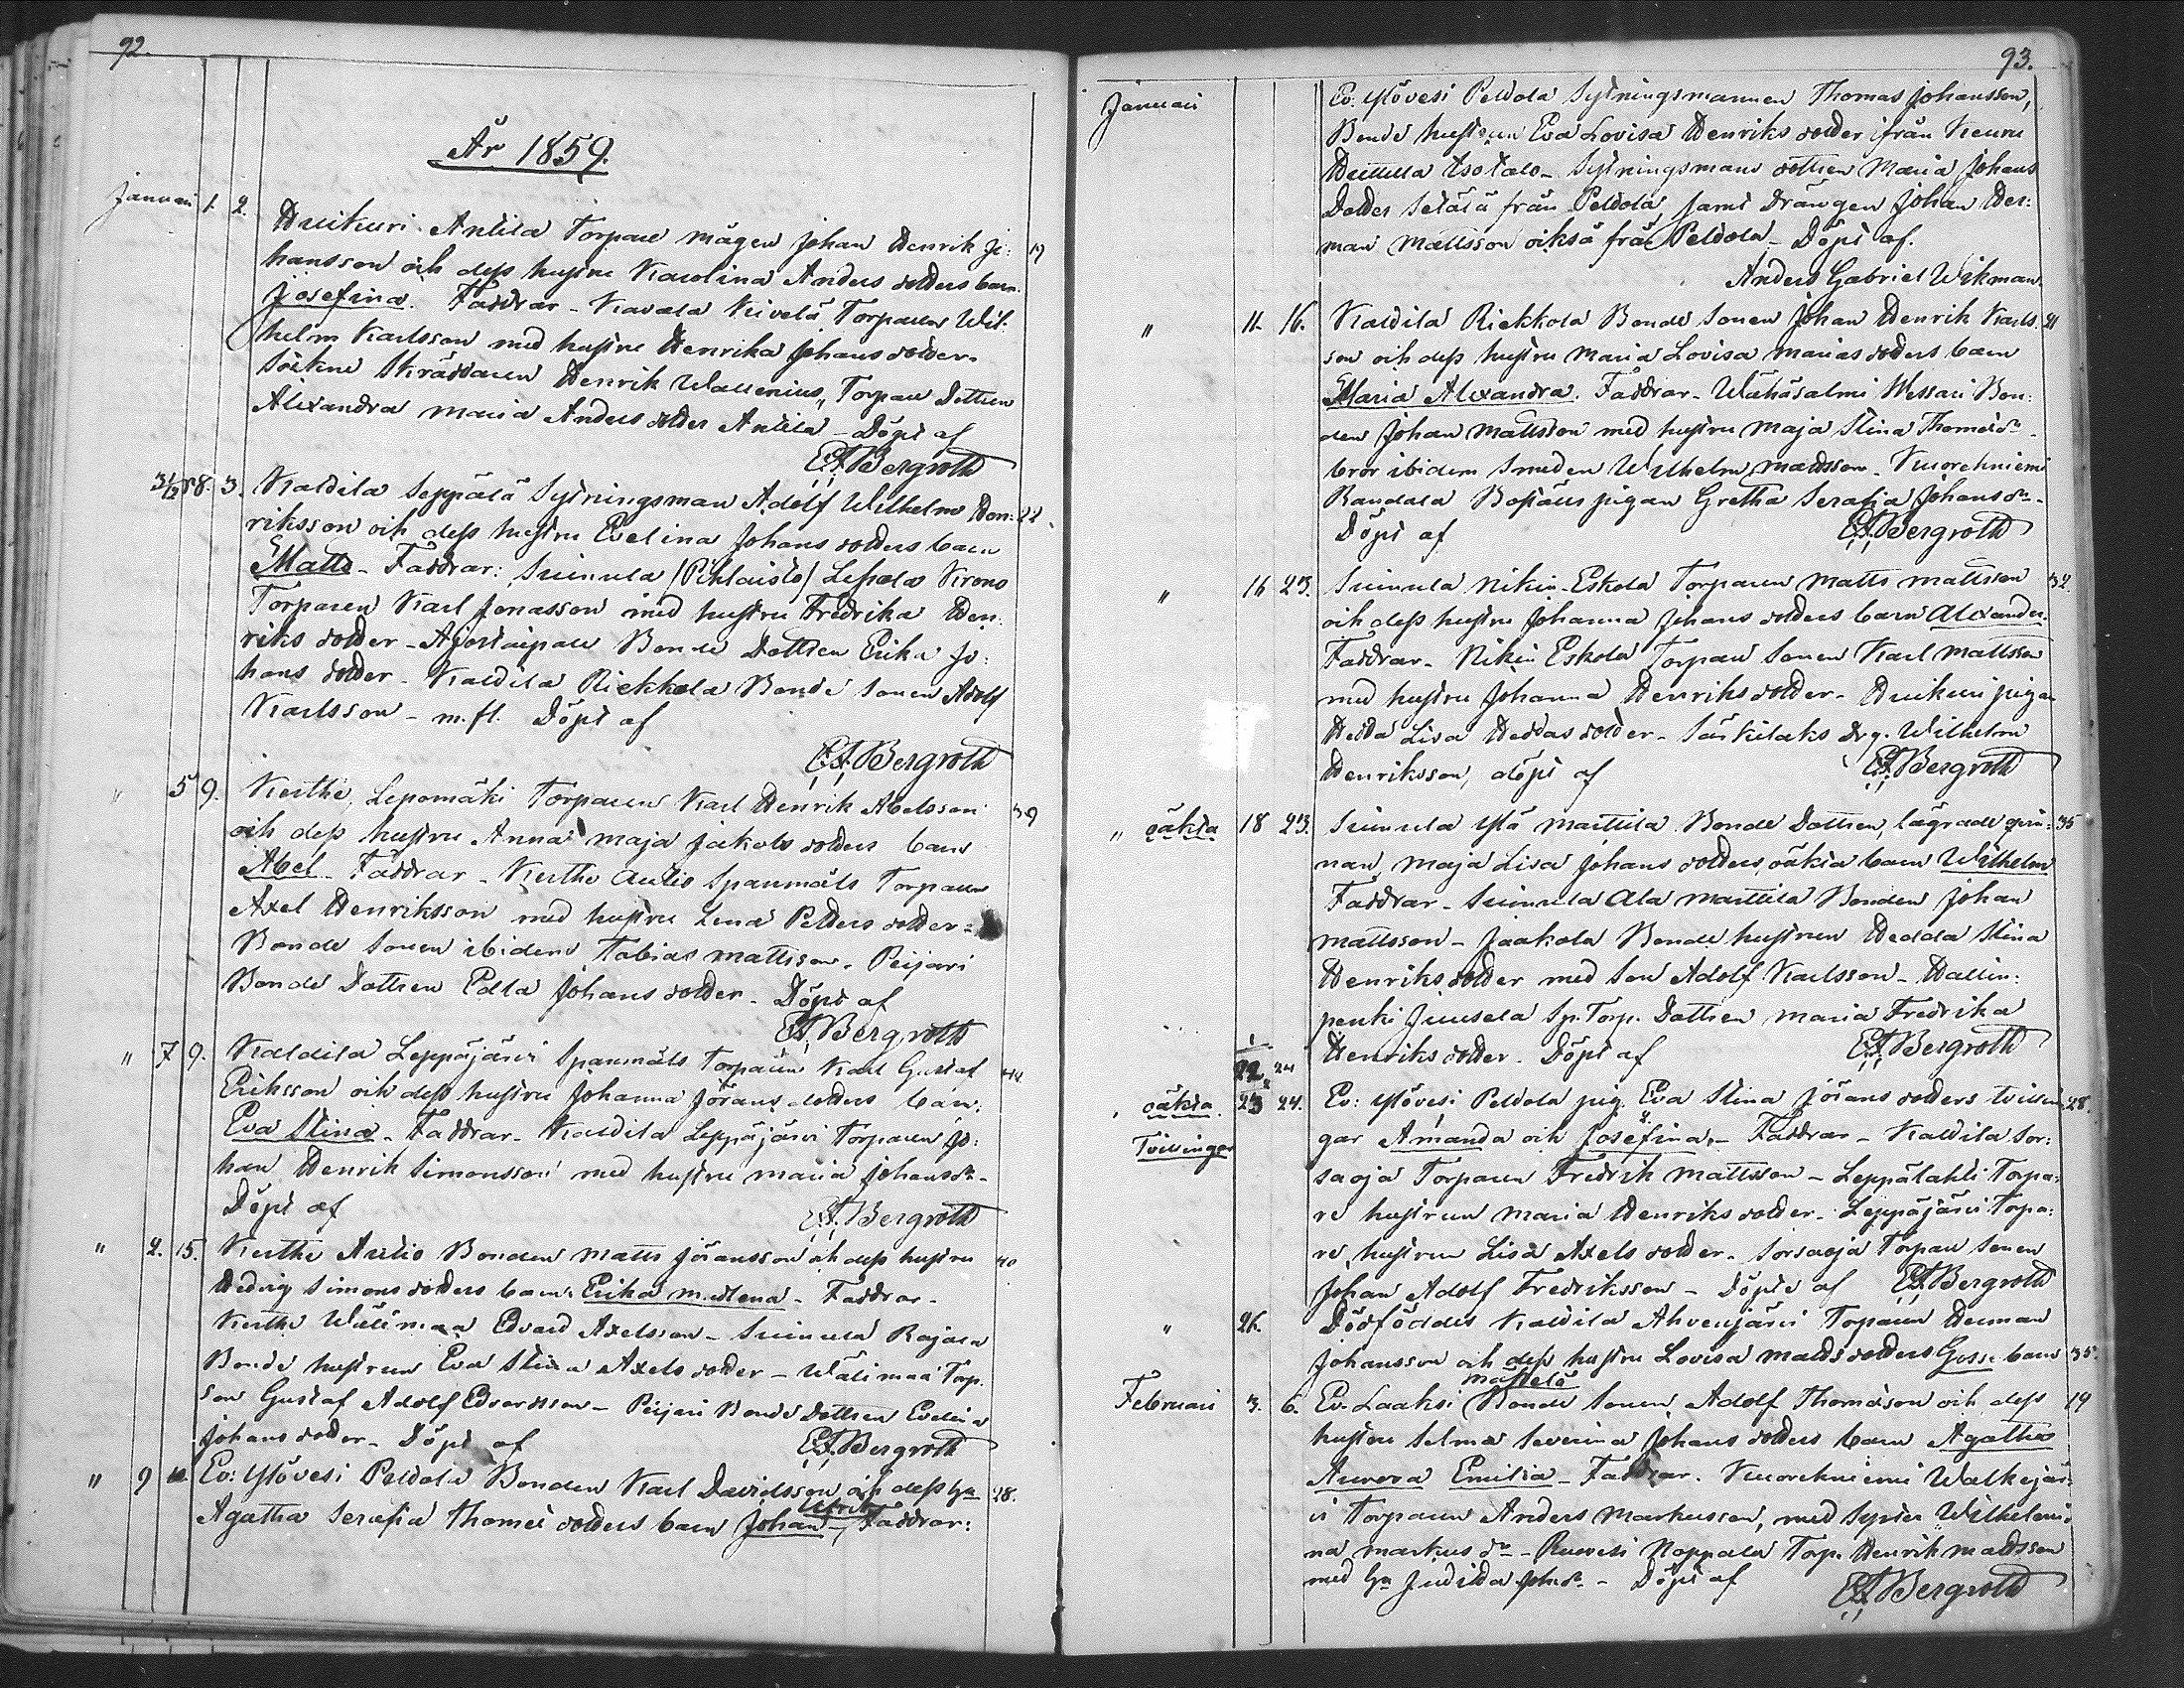 92.
År 1859.
Januari 1. 2. Huikuri Antila Torpare mågen Johan Henrik Jo: 19
hansson och dess hustru Karolina Anders dotters barn
Josefina. Faddrar - Kavala Kivelä Torparen Wil:
helm Karlsson med hustru Henrika Johans dotter -
Sockne Skräddaren Henrik Wallenius, Torpare Dottren
Alexandra Maria Anders dotter Antila - Döpt af
E.A. Bergroth
31/12 58. 3. Kaldila Seppälä Sytningsman Adolf Wilhelm Hen: 22.
riksson och dess hustru Evelina Johans dotters barn
Matts - Faddrar: Suinula (Pihlaisto) Lepola Krono
Torparen Karl Jonasson med hustru Fredrika Hen:
riks dotter - Ajostaipale Bonde Dottren Erika Jo:
hans dotter - Kaldila Riekkola Bonde sonen Adolf
Karlsson - m. fl. Döpt af
E.A. Bergroth
" 5 9. Kerthe, Lepomäki Torparen Karl Henrik Abelsson 39
och dess hustru Anna Maja Jakobs dotters barn
Abel - Faddrar - Kerthe Aulio Spanmåls Torparen
Axel Henriksson med hustru Lena Petters dotter -
Bonde Sonen ibidem Tobias Mattsson - Peijari
Bonde Dottren Edla Johans dotter - Döpt af
E.A. Bergroth
" 7 9. Kaldila Leppäjärvi Spanmåls Torparen Karl Gustaf 44
Eriksson och dess hustru Johanna Jörans dotters barn:
Eva Stina - Faddrar - Kaldila Leppäjärvi Torparen Jo:
han Henrik Simonsson med hustru Maria Johansdr -
Döpt af E.A. Bergroth
" 2. 15. Kerthe Aulio Bonden Matts Jöransson och dess hustru 40
Hedvig Simons dotters barn: Erika Madlena - Faddrar -
Kerthe Wälimaa Edvard Axelsson - Suinula Rajala
Bonde hustrun Eva Stina Axels dotter - Wälimaa Torp.
son Gustaf Adolf Edvardsson - Peijari Bonde Dottren Evelina
Johans dotter - Döpt af E.A. Bergroth
" 9 Ev: Ylövesi Peldola Bonden Karl Davidsson och dess hu 28.
Agatha Serafia Thomæ dotters barn Johan Ulrik - Faddrar:
93.
Januari Ev: Ylövesi Peldola Sytningsmannen Thomas Johansson,
Bonde hustrun Eva Lovisa Henriks dotter ifrån Keuru
Huttula Isotalo - Sytningsmans dottren Maria Johans
Dotter Setälä från Peldola samt Drängen Johan Her:
man Mattsson också från Peldola - Döpt af.
Anders Gabriel Wikman.
" 11. 16. Kaldila Riekkola Bonde sonen Johan Henrik Karls 21
son och dess hustru Maria Lovisa Marias dotters barn
Maria Alexandra. Faddrar - Wähäsalmi Wessari Bon:
den Johan Mattsson med hustru Maja Stina Thomædr -
bror ibidem Smeden Wilhelm Mattsson - Kuorehniemi
Randala Boställs pigan Gretha Serafia Johansdr -
Döpt af E.A. Bergroth
" 16 23. Suinula Nikin-Eskola Torparen Matts Mattsson 32.
och dess hustru Johanna Johans dotters barn Alexander.
Faddrar - Nikin Eskola Torpare sonen Karl Mattsson
med hustru Johanna Henriks dotter - Huikuri pigan
Hedda Lisa Heddas dotter - Särkilaks Drg. Wilhelm
Henriksson, döpt af E.A. Bergroth
" oäkta 18 23. Suinula Ylä Marttila Bonde Dottren, lägrade qvin: 35
nan, Maja Lisa Johans dotters, oäkta barn Wilhelm
Faddrar - Suinula Ala Marttila Bonden Johan
Mattsson - Jaakola Bonde hustrun Hedda Stina
Henriks dotter med son Adolf Karlsson - Hallin:
penki Juusela Sp. Torp. Dottren Maria Fredrika
Henriks dotter - Döpt af E.A. Bergroth
22 24
oäkta 23 24. Ev: Ylövesi Peldola pig. Eva Stina Jörans dotters tvillin 28.
Tvillingar gar Amanda och Josefina. - Faddrar - Kaldila Sor:
saoja Torparen Fredrik Mattsson - Leppälahti Torpa:
re hustrun Maria Henriks dotter - Leppäjärvi Torpa:
re hustrun Lisa Axels dotter - Sorsaoja Torpare sonen
Johan Adolf Fredriksson - Döpte af E.A. Bergroth
" 26. Dödföddes Kaldila Ahvenjärvi Torparen Herman
Johansson och dess hustru Lovisa Matts dotters Gosse barn 35.
Februari 3. 6. Ev. Laaksi Mastelä Bonde Sonen Adolf Thomasson och dess 19
hustru Selma Severina Johans dotters barn Agatha
Aurora Emilia - Faddrar - Kuorehniemi Walkejär:
vi Torparen Anders Markusson, med syster Wilhelmi:
na Markus dr - Ruovesi Noppala Torp. Henrik Mattsson
med hu Juditha Johdr - Döpt af E.A. Bergroth